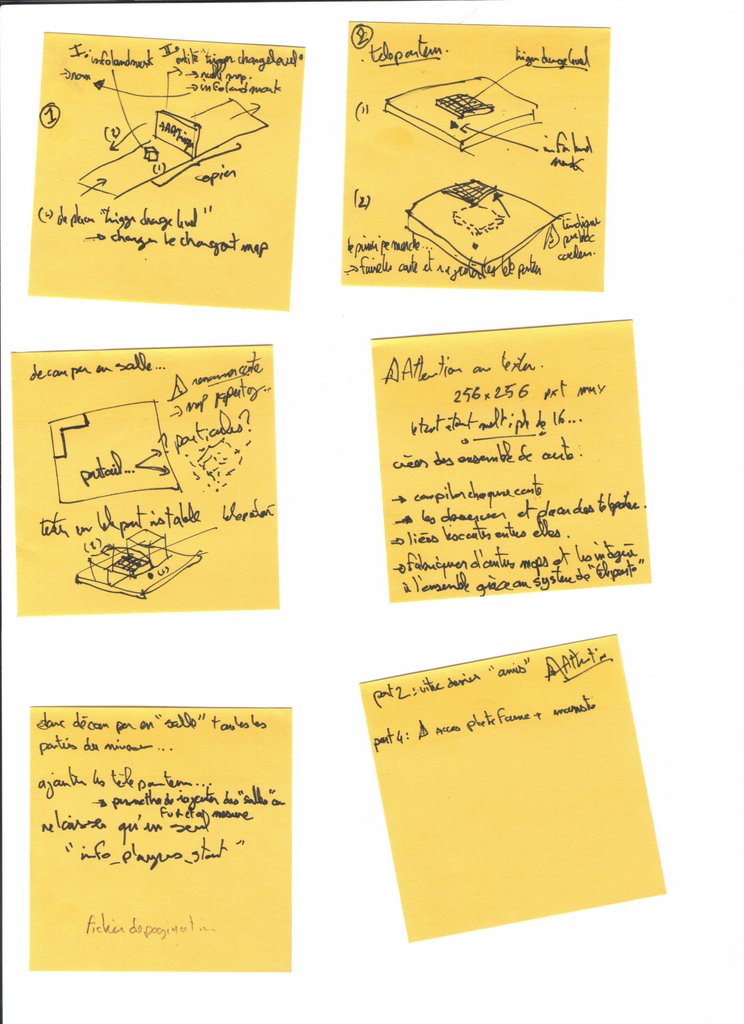 ①
I. infolandmark
→ nom
II. entité "trigger changelevel"
→ nom map.
→ infolandmark
(2)
(1)
copier
(2) de placer "trigger change level"
→ changer le changent map
②
teleporteur.
trigger change level
(1)
info land
mark
(2)
le principe marche...
→ faire la carte et rajouter les teleporteur
indiquer
par bloc
couleur.
decouper en salle...
renommer carte
→ map repertory...
particules?
portail...
tester un teleport instable
teleporteur
(2)
(1)
Attention au textur.
256 x 256 pxt max
le tout étant multiple de 16...
créer des ensemble de carte:
→ compiler chaque carte
→ les dessiner et placer des teleporteur.
→ liéers les cartes entres elles.
→ fabriquer d'autres maps et les intégrer
à l'ensemble grâce au system de "teleporte"
donc découper en "salle" toutes les
parties du niveau...
ajouter les téléporteur...
→ permettre de rajouter des "salles" au
fur et à mesure
ne laisser qu'un seul
"info_player_start"
fichier de pagination
part 2: vitre dernier "amis" Attention
part 4: acces plateforme +